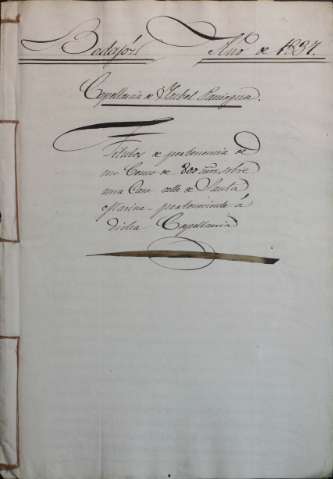 Badajóz Año de 1837.
Capellania de Ysabel
Titulos de pertenencia de
un Censo de 800 sobre
una Casa calle de Santa
Marina perteneciente á
dicha Capellania